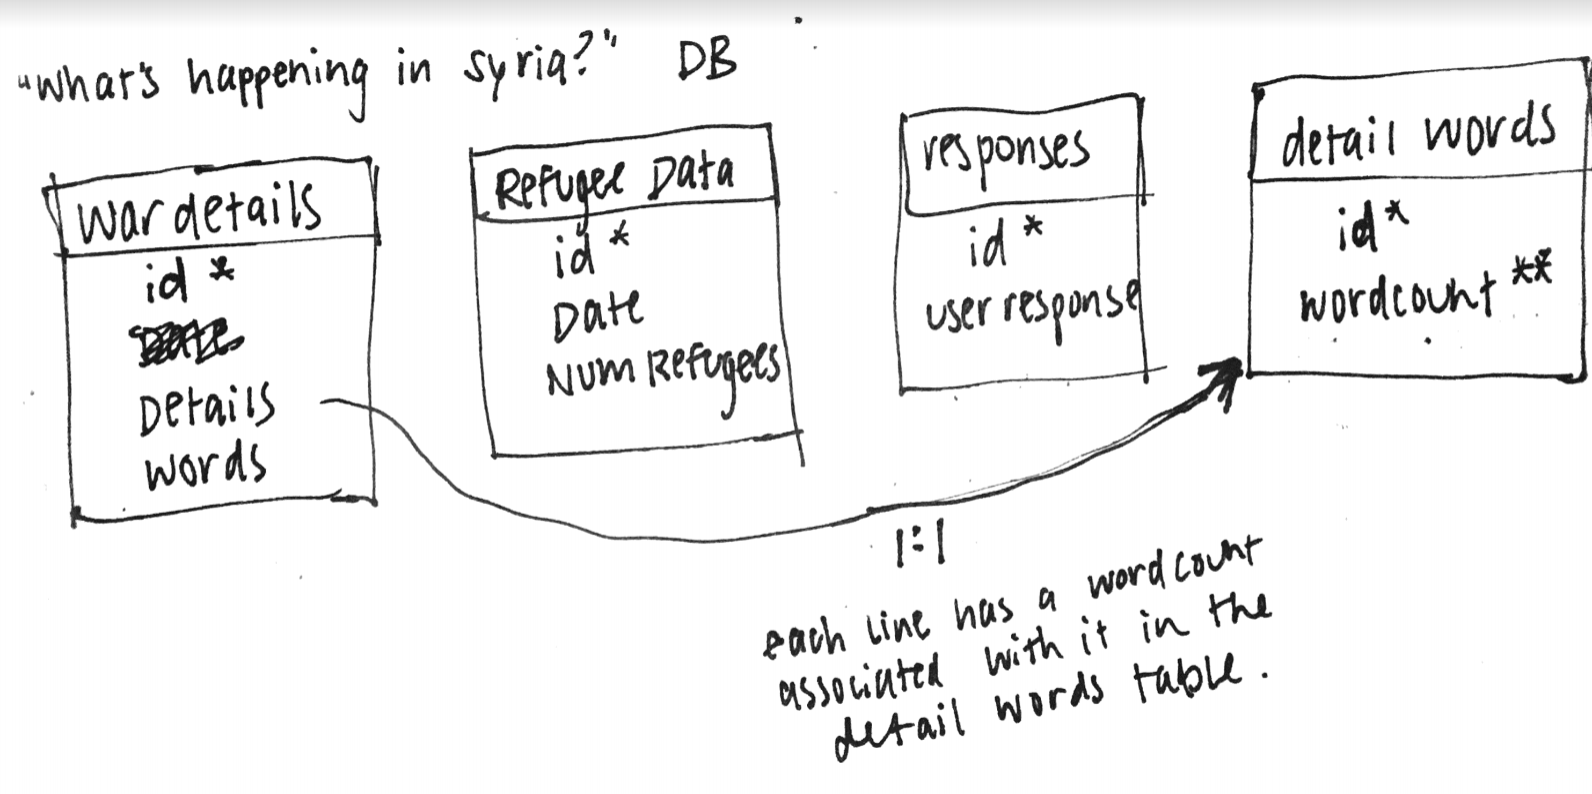 "What's happening in syria?" DB
war details
id *
Details
words
Refugee Data
id *
Date
Num Refugees
responses
id *
user response
detail words
id *
wordcount **
1:1
each line has a wordcount
associated with it in the
detail words table.